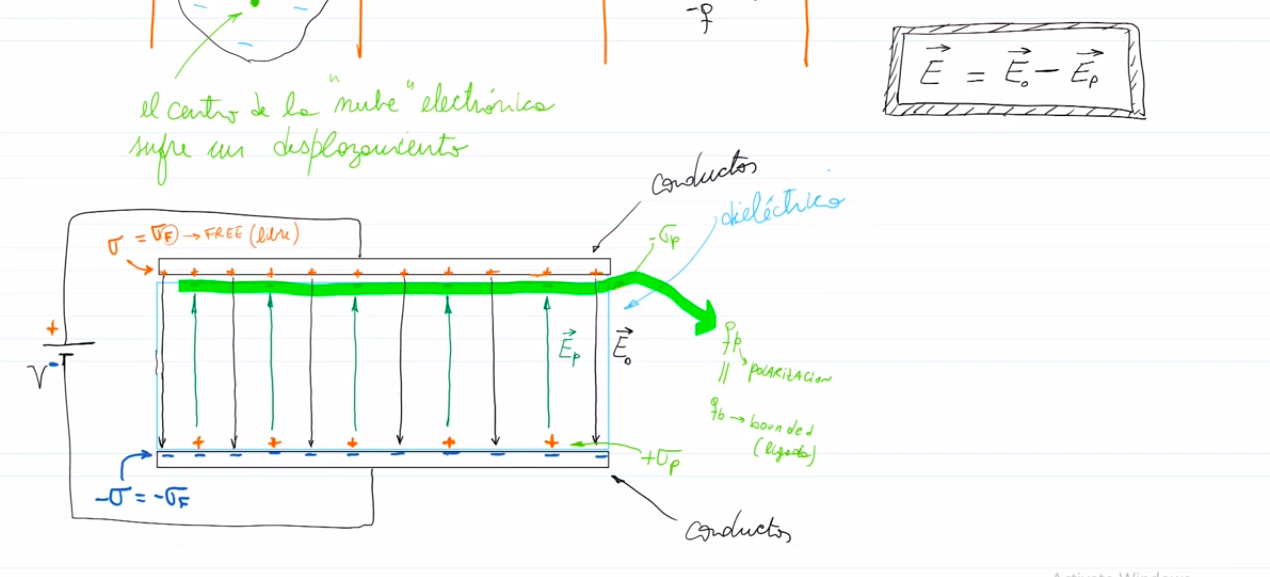 -q
E = E₀ - Eₚ
el centro de la "nube" electrónica
sufre un desplazamiento
conductor
dieléctrico
σ = σF → FREE (libre)
-σp
+
V -
Eₚ
E₀
qp
polarización
||
qb → bounded
(ligada)
+σp
-σ = -σF
conductor